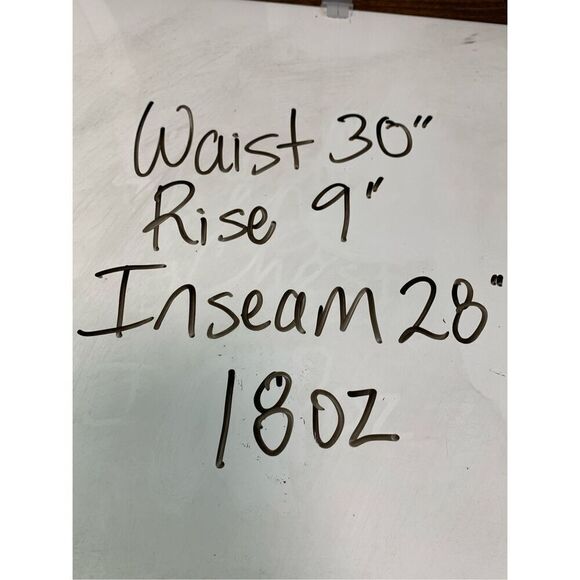 Waist 30"
Rise 9"
Inseam 28"
18oz